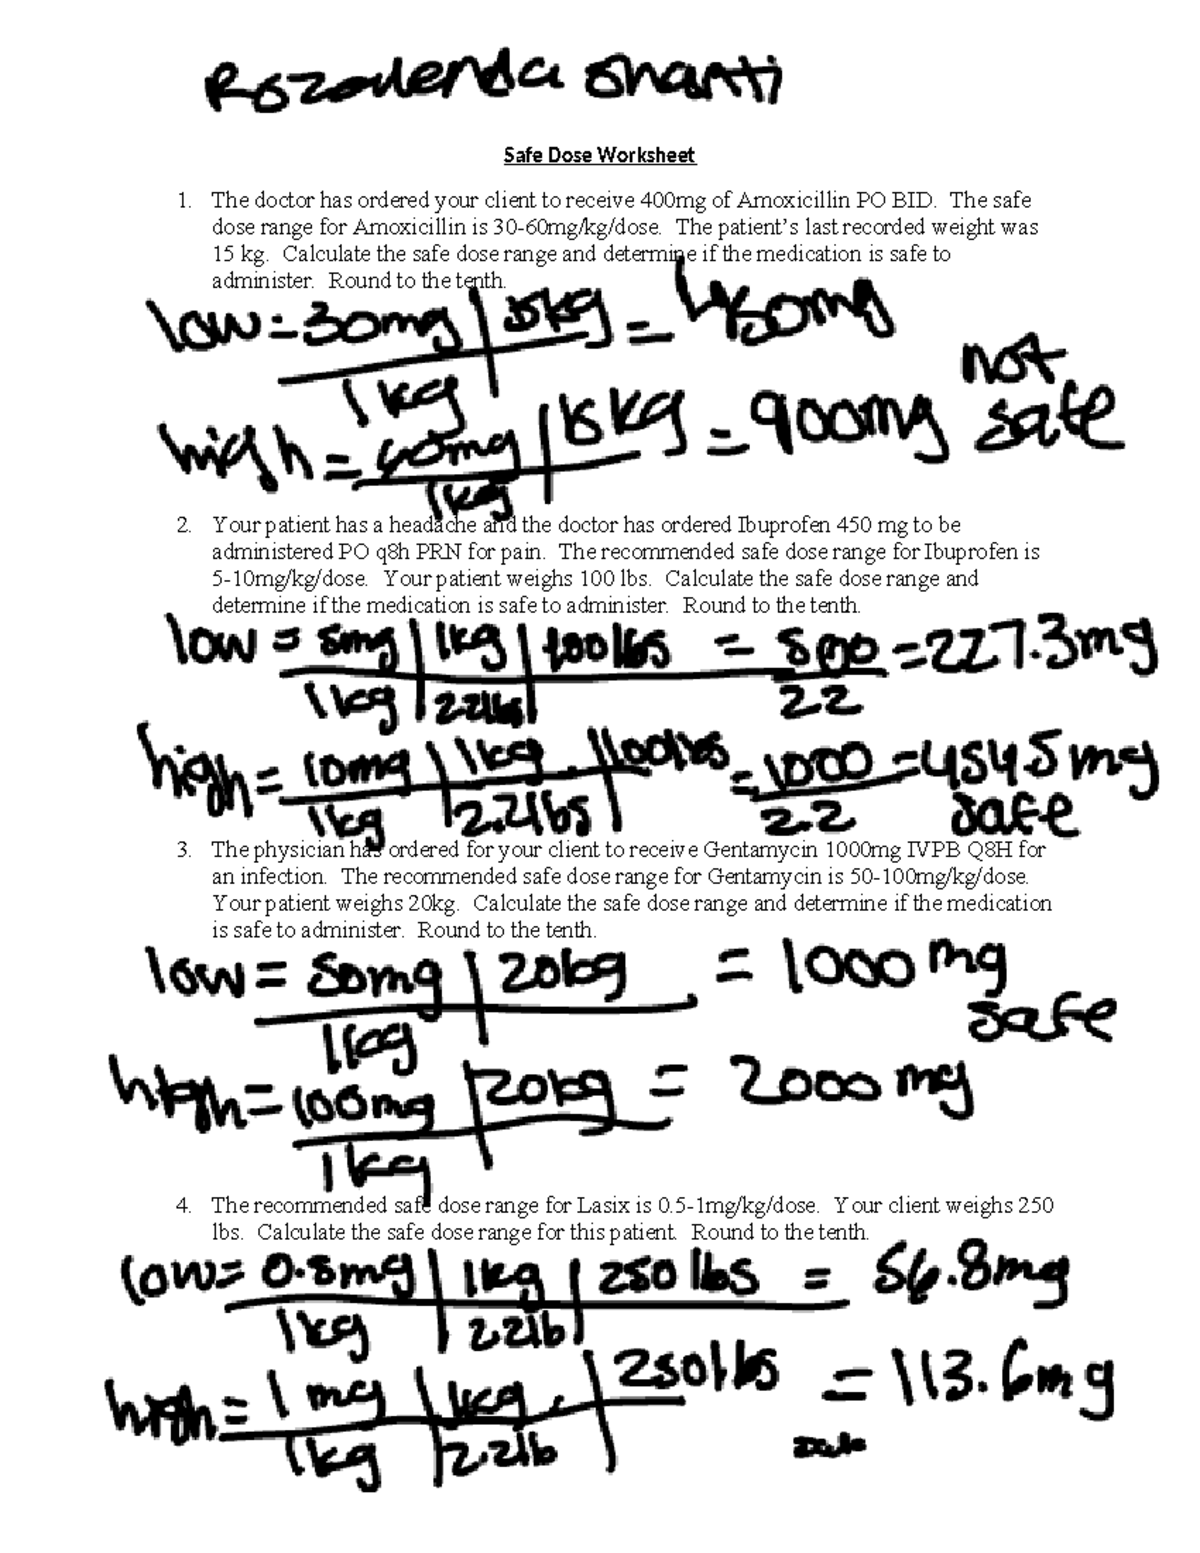 Rozalenda Shanti
Safe Dose Worksheet
1. The doctor has ordered your client to receive 400mg of Amoxicillin PO BID. The safe
dose range for Amoxicillin is 30-60mg/kg/dose. The patient's last recorded weight was
15 kg. Calculate the safe dose range and determine if the medication is safe to
administer. Round to the tenth.
low = 30mg | 15kg = 450mg
1kg
not
high = 60mg | 15kg = 900mg safe
1kg
2. Your patient has a headache and the doctor has ordered Ibuprofen 450 mg to be
administered PO q8h PRN for pain. The recommended safe dose range for Ibuprofen is
5-10mg/kg/dose. Your patient weighs 100 lbs. Calculate the safe dose range and
determine if the medication is safe to administer. Round to the tenth.
low = 5mg | 1kg | 100lbs = 500 = 227.3mg
1kg | 2.2lbs | 2.2
high = 10mg | 1kg | 100lbs = 1000 = 454.5mg
1kg | 2.2lbs | 2.2 safe
3. The physician has ordered for your client to receive Gentamycin 1000mg IVPB Q8H for
an infection. The recommended safe dose range for Gentamycin is 50-100mg/kg/dose.
Your patient weighs 20kg. Calculate the safe dose range and determine if the medication
is safe to administer. Round to the tenth.
low = 50mg | 20kg = 1000mg
1kg safe
high = 100mg | 20kg = 2000mg
1kg
4. The recommended safe dose range for Lasix is 0.5-1mg/kg/dose. Your client weighs 250
lbs. Calculate the safe dose range for this patient. Round to the tenth.
low = 0.5mg | 1kg | 250 lbs = 56.8mg
1kg | 2.2lb
high = 1mg | 1kg | 250lbs = 113.6mg
1kg | 2.2lb